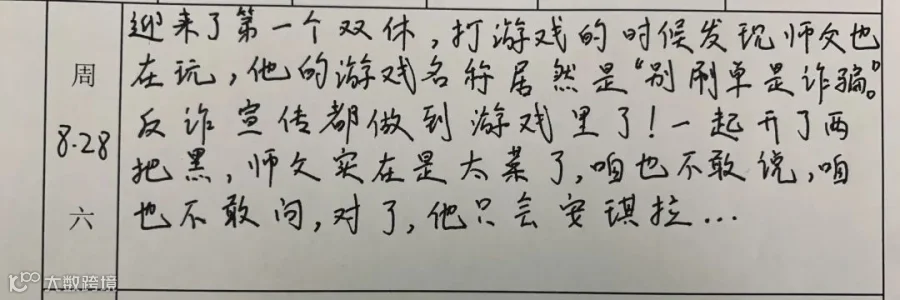 周
8.28
六
迎来了第一个双休，打游戏的时候发现师父也
在玩，他的游戏名称居然是“别刷单是诈骗”。
反诈宣传都做到游戏里了！一起开了两
把黑，师父实在是太菜了，咱也不敢说，咱
也不敢问，对了，他只会安琪拉…
大数跨境